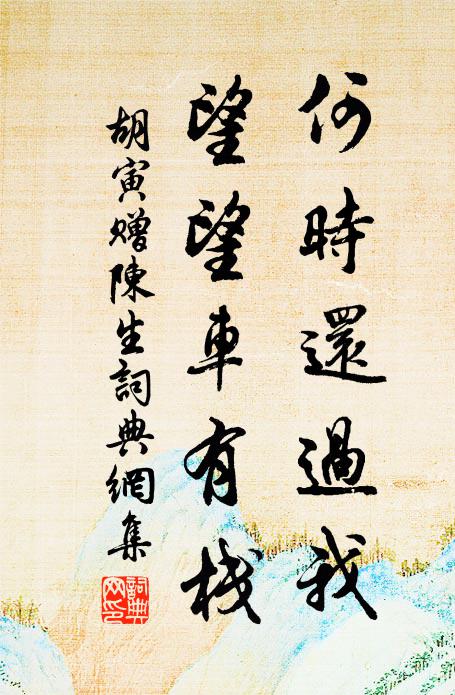 何時還過我
望望車有棧
胡寅贈陳生詞典網集
詞典网印